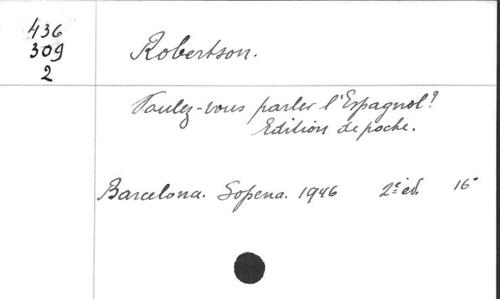 436
309
2
Robertson.
Voulez-vous parler l'Espagnol?
Edition de poche.
Barcelona. Sopena. 1946 2ª ed. 16°